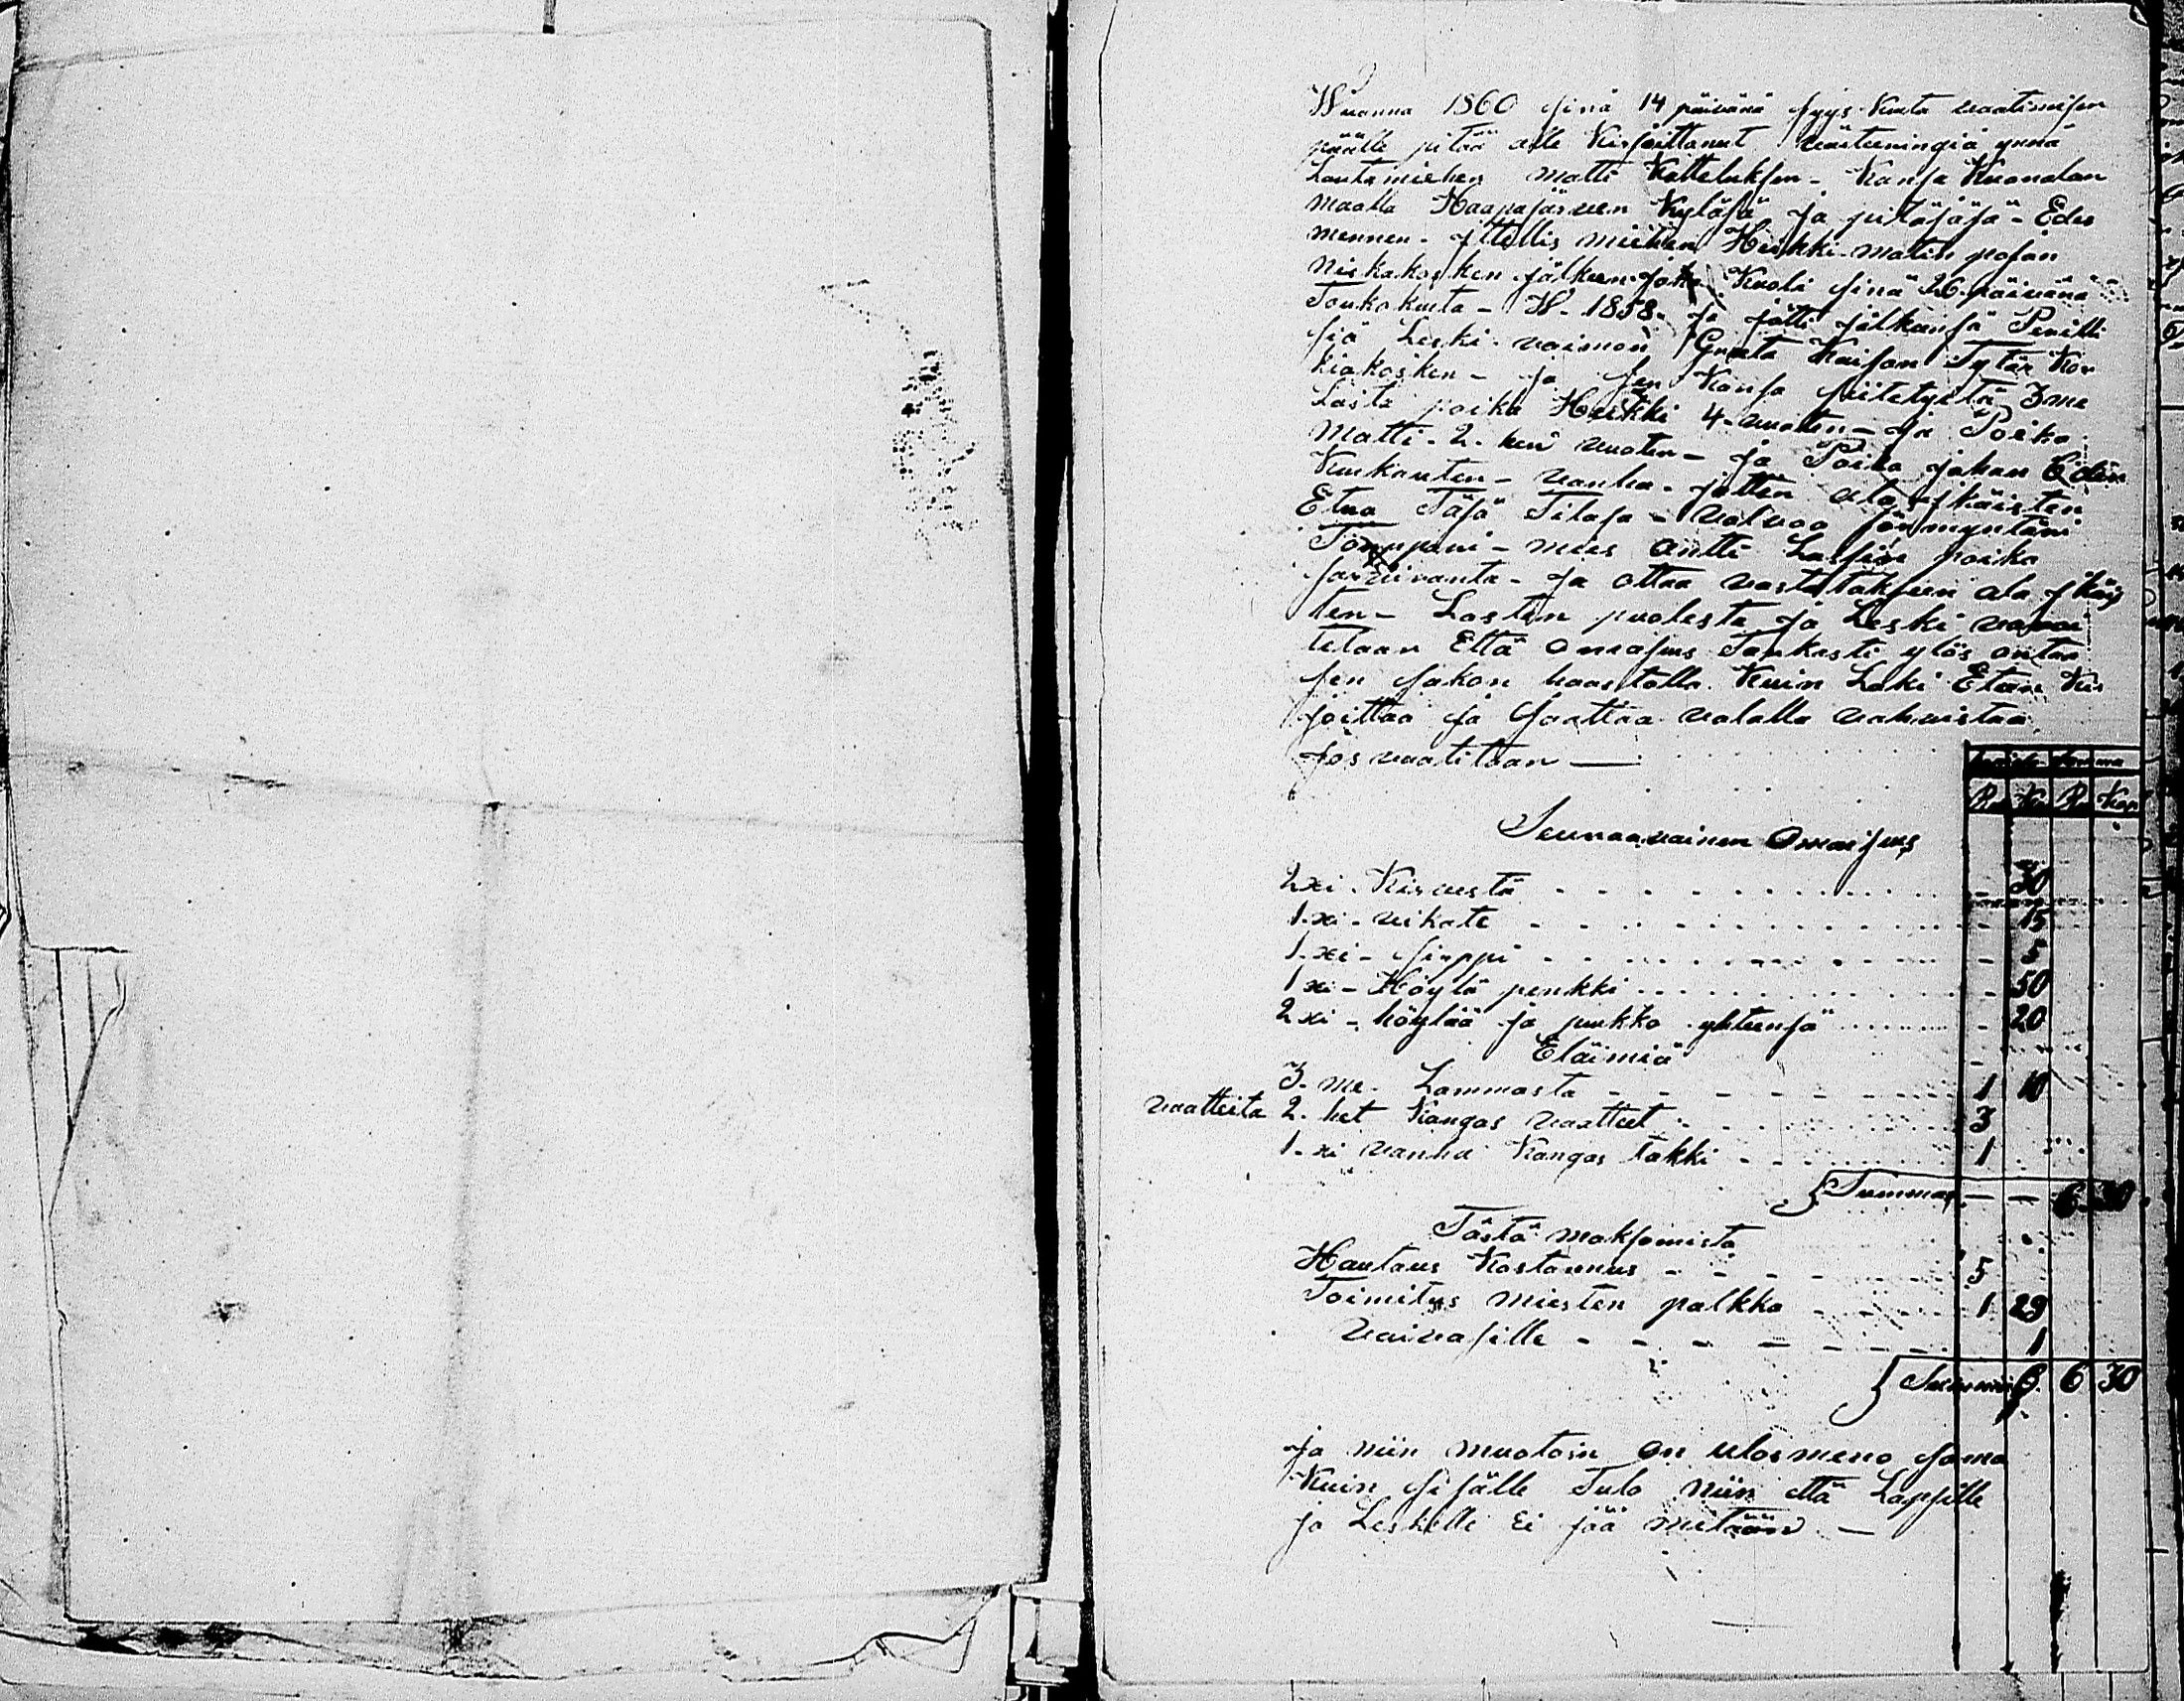 Wuonna 1860 sinä 14 päivänä syys kuuta vaatimisen
päälle pitää alle Kirjoittanut värteeningiä ynnä
Lautamiehen Matti Katteluksen - Kansa Kuonalan
maalla Haapajärven Kyläsä ja pitäjäsä - Edes
mennen - ittellis miehen Heikki matin pojan
Niskakosken jälkeen joka Kuoli sinä 26 päivänä
Toukokuuta - W. 1858 - ja jätti jälkeensä Perilli
siä Leski vaimon Greeta Kaisan Tytär Kor
kiakosken - ja sen Kansa siitetyitä 3me
Lasta poika Heikki 4 vuoten - ja Poika
Matti - 2. hen vuoten - ja Poika johan 6 den
Kuukauten - vanha - jotten ala ikäisten
Etua Täsä Tilasa - valvoo förmyntäri
Torppari - mies Antti Lassin poika
Järviranta - ja ottaa vastatakseen ala ikäis
ten - Lasten puolesta ja Leski
tetaan Että omaisus Tarkasti ylös antaa
sen jakon haastolla Kuin Laki Eteen Kir
joittaa ja saattaa valalla vahvistaa
jos vaatitaan —
Summa
Ru Ko Ru Kop
Seuraavainen Omaisus
2xi - Kirvestä - - - 30
1-xi - vikate - - - 15
1-xi - sirppi - - - 5
1 xi - Höylä penkki - - - 50
2 xi - höylää ja puukko yhteensä - - - 20
Eläimiä
3. me. Lammasta - - - 1 10
vaatteita 2. het Kangas vaatteet - - - 3
1-xi vanha Kangas takki - - - 1
Summa — — 6 30
Tästä maksemista
Hautaus Kostannus - - - 5
Toimitus miesten palkka - - - 1 29
Vaivasille - - - 1
Summa 6 30
Ja niin muotoin on ulosmeno sama
Kuin sisälle Tulo niin että Lapsille
ja Leskelle Ei jää mitään —